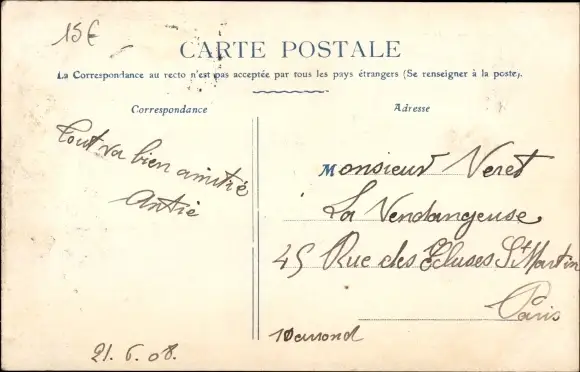 15€
CARTE POSTALE
La Correspondance au recto n'est pas acceptée par tous les pays étrangers (Se renseigner à la poste).
Correspondance
Adresse
Tout va bien amitié
Monsieur Veret
La Vendangeuse
45 Rue des Ecluses St Martin
Paris
21. 6. 08.